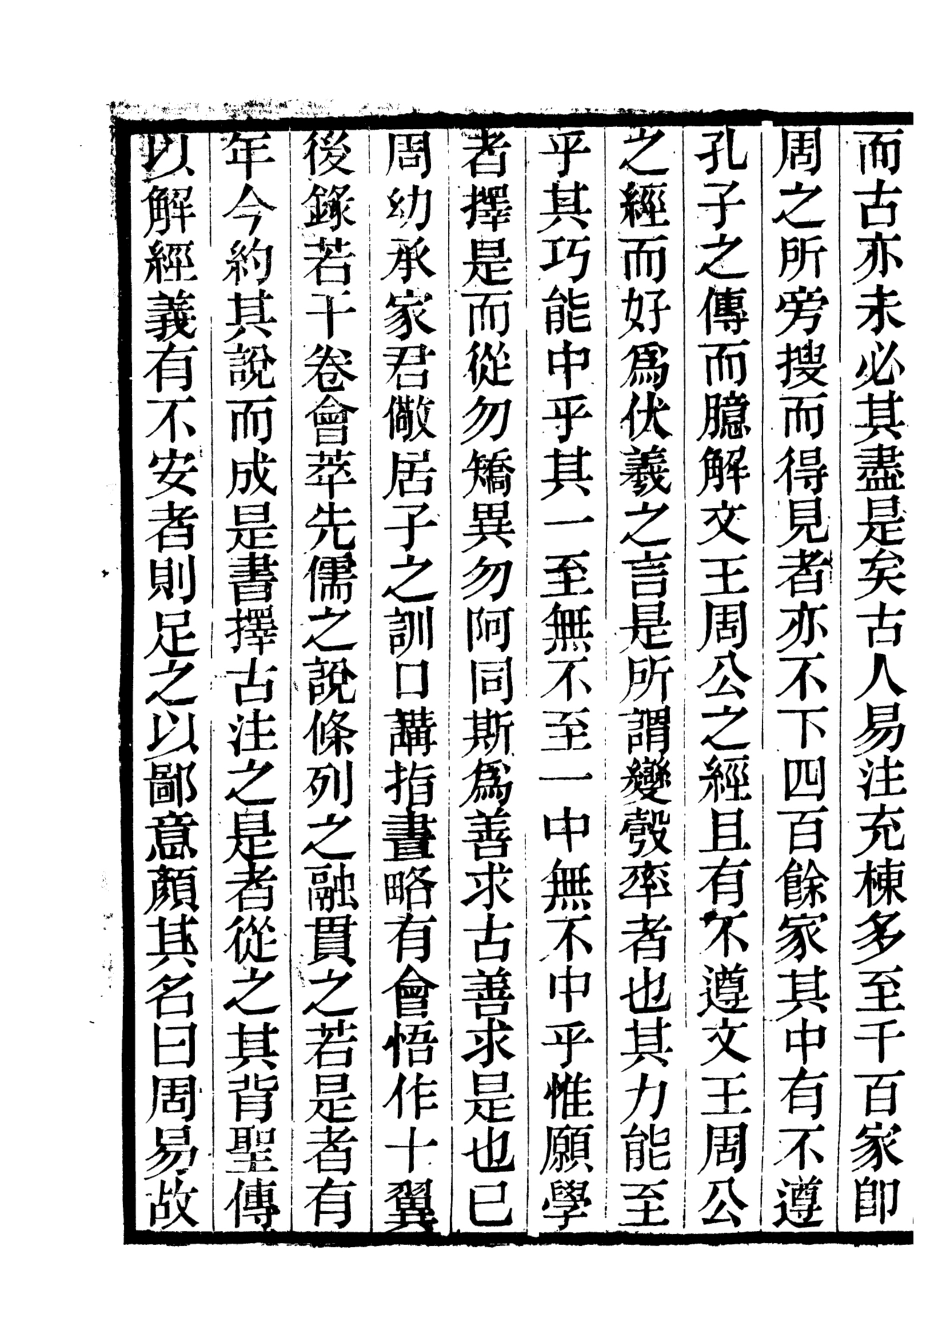 而古亦未必其盡是矣古人易注充棟多至千百家卽
周之所旁搜而得見者亦不下四百餘家其中有不遵
孔子之傳而臆解文王周公之經且有不遵文王周公
之經而好爲伏羲之言是所謂變彀率者也其力能至
乎其巧能中乎其一至無不至一中無不中乎惟願學
者擇是而從勿矯異勿阿同斯爲善求古善求是也已
周幼承家君儆居子之訓口講指畫略有會悟作十翼
後錄若干卷會萃先儒之說條列之融貫之若是者有
年今約其說而成是書擇古注之是者從之其背聖傳
以解經義有不安者則足之以鄙意顏其名曰周易故